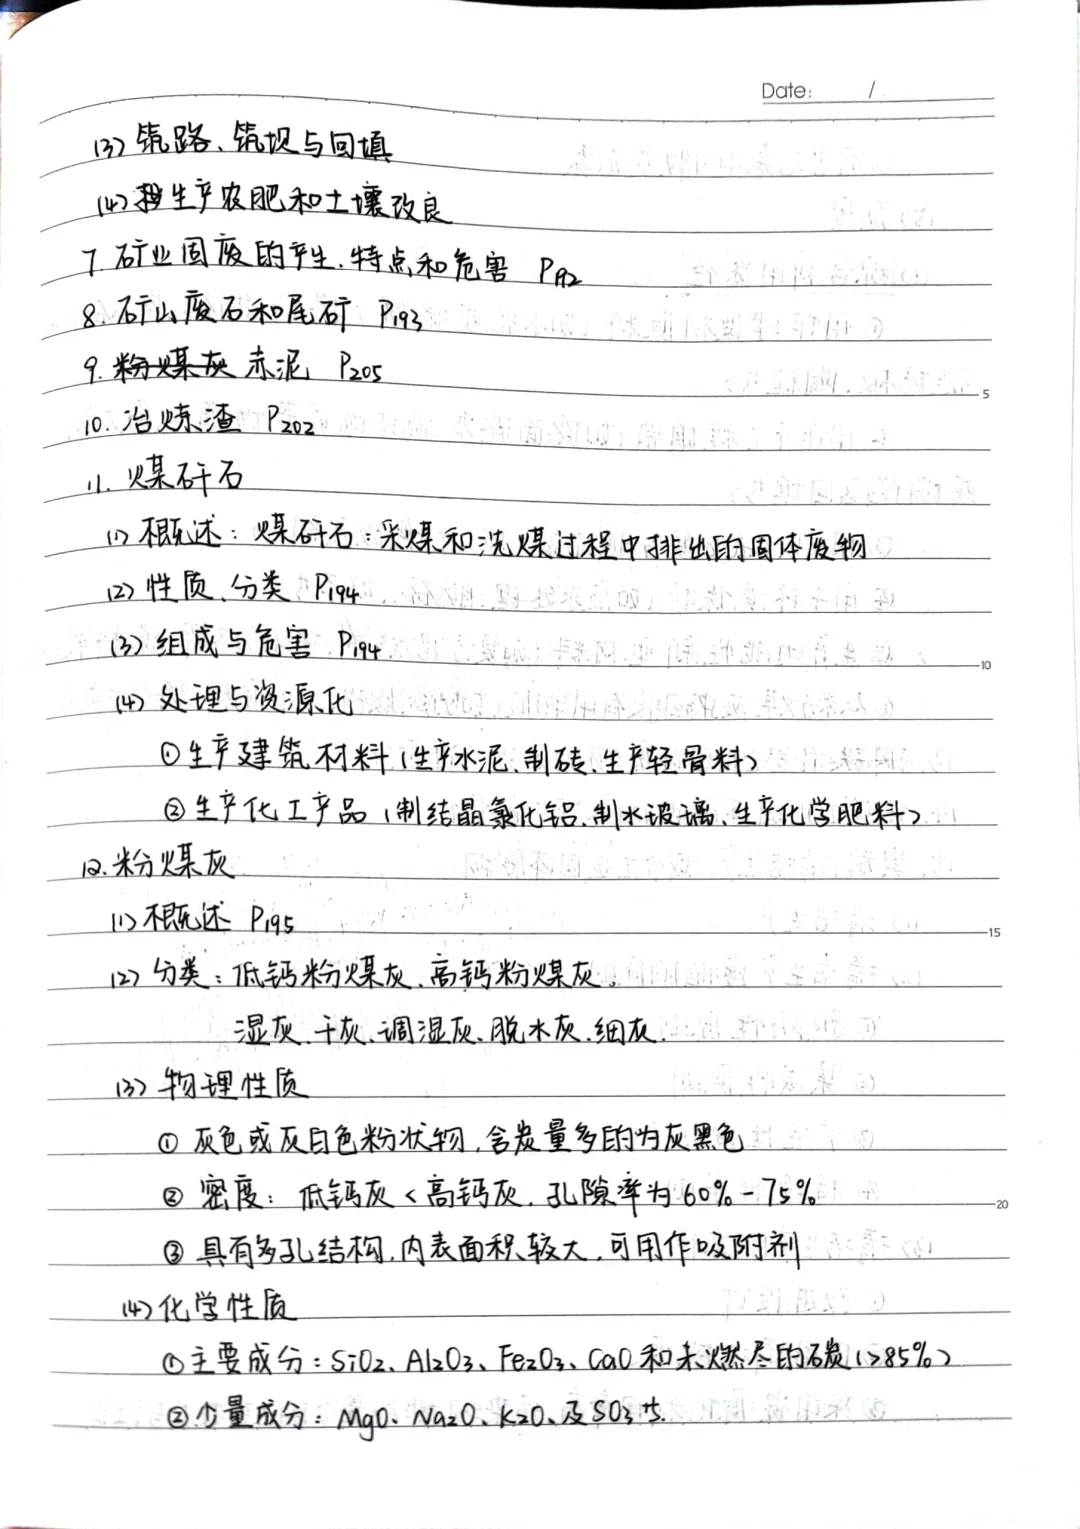 Date: /
(3) 筑路、筑坝与回填
(4) 生产农肥和土壤改良
7. 矿业固废的产生、特点和危害 P192
8. 矿山废石和尾矿 P193
9. 粉煤灰 赤泥 P205
10. 冶炼渣 P202
11. 煤矸石
(1) 概述：煤矸石：采煤和洗煤过程中排出的固体废物
(2) 性质、分类 P194
(3) 组成与危害 P194
(4) 处理与资源化
① 生产建筑材料（生产水泥、制砖、生产轻骨料）
② 生产化工产品（制结晶氯化铝、制水玻璃、生产化学肥料）
12. 粉煤灰
(1) 概述 P195
(2) 分类：低钙粉煤灰、高钙粉煤灰。
湿灰、干灰、调湿灰、脱水灰、细灰.
(3) 物理性质
① 灰色或灰白色粉状物，含炭量多的为灰黑色
② 密度：低钙灰＜高钙灰，孔隙率为60%-75%
③ 具有多孔结构，内表面积较大，可用作吸附剂
(4) 化学性质
① 主要成分：SiO2、Al2O3、Fe2O3、CaO和未燃尽的碳（>85%）
② 少量成分：MgO、Na2O、K2O、及SO3等.
5
10
15
20